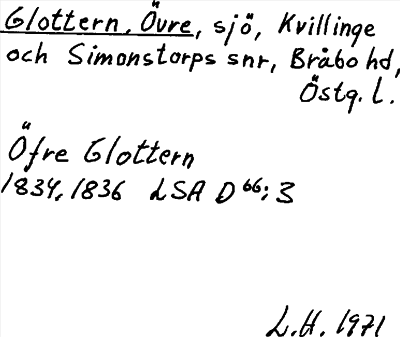 Glottern, Övre, sjö, Kvillinge
och Simonstorps snr, Bråbo hd,
Östg. l.
Öfre Glottern
1834, 1836 LSA D 66:3
L.H. 1971